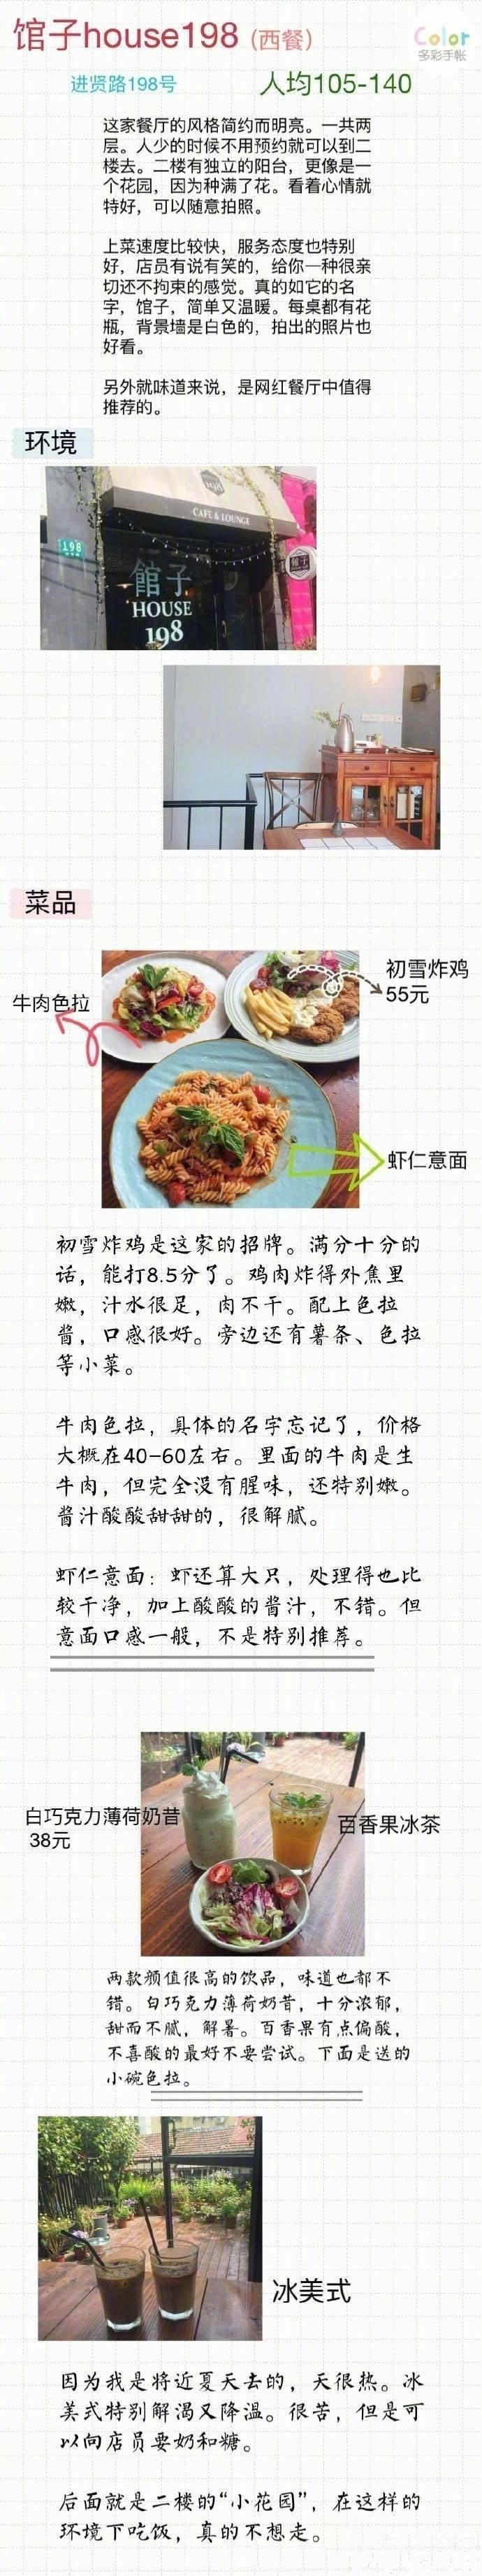 馆子house198 (西餐)
Color
多彩手帐
进贤路198号
人均105-140
这家餐厅的风格简约而明亮。一共两
层。人少的时候不用预约就可以到二
楼去。二楼有独立的阳台，更像是一
个花园，因为种满了花。看着心情就
特好，可以随意拍照。
上菜速度比较快，服务态度也特别
好，店员有说有笑的，给你一种很亲
切还不拘束的感觉。真的如它的名
字，馆子，简单又温暖。每桌都有花
瓶，背景墙是白色的，拍出的照片也
好看。
另外就味道来说，是网红餐厅中值得
推荐的。
环境
198
CAFE & LOUNGE
198
館子
HOUSE
198
館子
菜品
初雪炸鸡
55元
牛肉色拉
虾仁意面
初雪炸鸡是这家的招牌。满分十分的
话，能打8.5分了。鸡肉炸得外焦里
嫩，汁水很足，肉不干。配上色拉
酱，口感很好。旁边还有薯条、色拉
等小菜。
牛肉色拉，具体的名字忘记了，价格
大概在40-60左右。里面的牛肉是生
牛肉，但完全没有腥味，还特别嫩。
酱汁酸酸甜甜的，很解腻。
虾仁意面：虾还算大只，处理得也比
较干净，加上酸酸的酱汁，不错。但
意面口感一般，不是特别推荐。
白巧克力薄荷奶昔
38元
百香果冰茶
两款颜值很高的饮品，味道也都不
错。白巧克力薄荷奶昔，十分浓郁，
甜而不腻，解暑。百香果有点偏酸，
不喜酸的最好不要尝试。下面是送的
小碗色拉。
冰美式
因为我是将近夏天去的，天很热。冰
美式特别解渴又降温。很苦，但是可
以向店员要奶和糖。
后面就是二楼的“小花园”，在这样的
环境下吃饭，真的不想走。